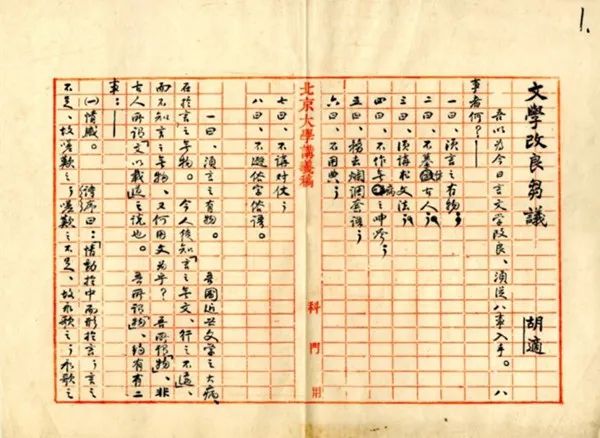 1.
文學改良芻議
胡適
吾以為今日言文學改良、須從八事入手。八
事者何?——
一曰、須言之有物;
二曰、不摹倣古人;
三曰、須講求文法;
四曰、不作無病之呻吟;
五曰、務去爛調套語;
六曰、不用典;
北京大學講義稿 科 門 用
七曰、不講對仗;
八曰、不避俗字俗語。
一曰、須言之有物。 吾國近世文學之大病、
在於言之無物。今人徒知「言之無文、行之不遠」、
而不知言之無物、又何用文為乎?吾所謂「物」、非
古人所謂「文以載道」之說也。吾所謂「物」、約有二
事:——
(一)情感。詩序曰:「情動於中而形於言;言之
不足、故嗟歎之;嗟歎之不足、故永歌之;永歌之